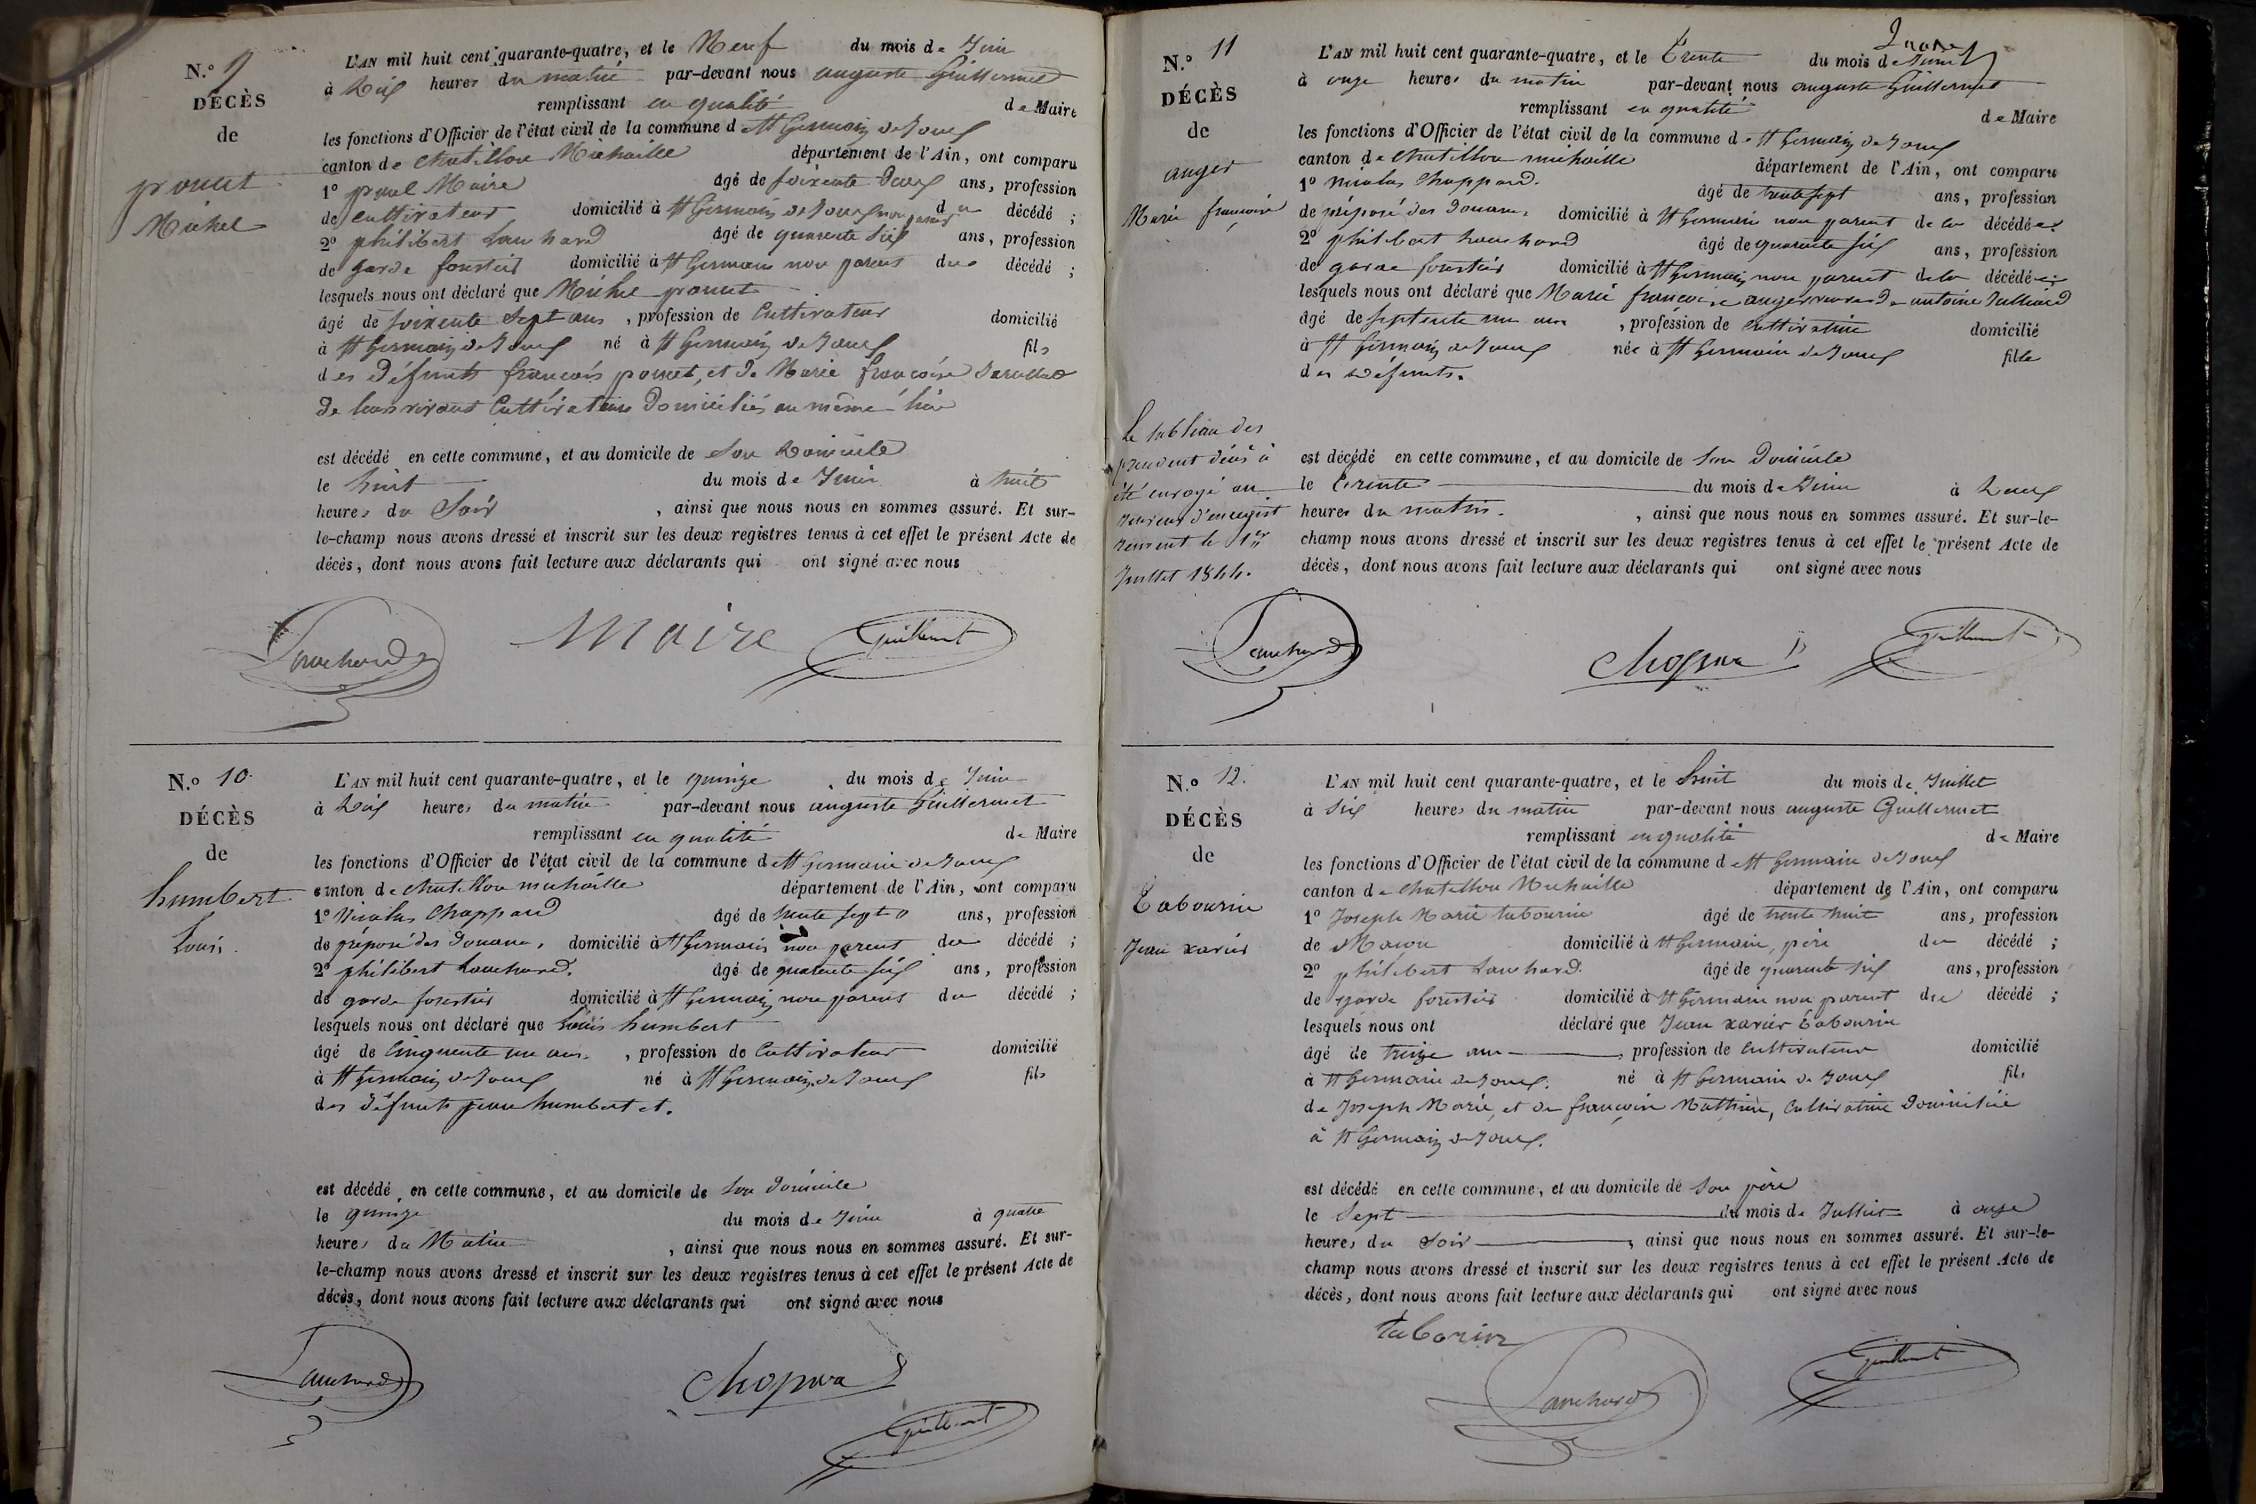 N.° 9
DÉCÈS
de
poucet
Michel
L'AN mil huit cent quarante-quatre, et le Neuf du mois de Juin
à Dix heures du matin par-devant nous auguste Guillermet
remplissant en qualité de Maire
les fonctions d'Officier de l'état civil de la commune d e St Germain de Joux
canton de chatillon Michaille département de l'Ain, ont comparu
1° paul Maire âgé de soixente Deux ans, profession
de cultivateur domicilié à St Germain de Joux non parent du décédé ;
2° philibert Lanchard âgé de quarente six ans, profession
de garde forestier domicilié à St Germain non parent du décédé ;
lesquels nous ont déclaré que Michel poucet
âgé de soixente sept ans , profession de Cultivateur domicilié
à St Germain de Joux né à St Germain de Joux fils
des Défunts françois poucet, et de Marie françoise
De leurs vivant Cultivateurs Domiciliés au même lieu
est décédé en cette commune, et au domicile de son Domicile
le huit du mois de Juin à huit
heures du Soir , ainsi que nous nous en sommes assuré. Et sur-
le-champ nous avons dressé et inscrit sur les deux registres tenus à cet effet le présent Acte de
décès, dont nous avons fait lecture aux déclarants qui ont signé avec nous
Lanchard Maire Guillermet
N.° 10
DÉCÈS
de
humbert
Louis
L'AN mil huit cent quarante-quatre, et le quinze du mois de Juin
à Dix heures du matin par-devant nous auguste Guillermet
remplissant en qualité de Maire
les fonctions d'Officier de l'état civil de la commune d e St Germain de Joux
canton de chatillon michaille département de l'Ain, ont comparu
1° Nicolas Chappard âgé de trente sept ans, profession
de préposé des Douanes, domicilié à St Germain non parent du décédé ;
2° philibert Lanchard. âgé de quarente six ans, profession
de garde forestier domicilié à St Germain non parent du décédé ;
lesquels nous ont déclaré que Louis humbert
âgé de Cinquente un ans , profession de Cultivateur domicilié
à St Germain de Joux né à St Germain de Joux fils
des défunts jean humbert et.
est décédé en cette commune, et au domicile de son Domicile
le quinze du mois de Juin à quatre
heures du Matin , ainsi que nous nous en sommes assuré. Et sur-
le-champ nous avons dressé et inscrit sur les deux registres tenus à cet effet le présent Acte de
décès, dont nous avons fait lecture aux déclarants qui ont signé avec nous
Lanchard Guillermet
N.° 11
DÉCÈS
de
anger
Marie françoise
Le tableau des
présent décès à
été envoyé au
receveur d'enregist
rement le 1er
Juillet 1844.
L'AN mil huit cent quarante-quatre, et le Trente du mois de Juin
à onze heures du matin par-devant nous auguste Guillermet
remplissant en qualité de Maire
les fonctions d'Officier de l'état civil de la commune d e St Germain de Joux
canton de Chatillon michaille département de l'Ain, ont comparu
1° nicolas Chappard. âgé de trente sept ans, profession
de préposé des Douanes, domicilié à St Germain non parent de la décédée.
2° philibert Lanchard âgé de quarente six ans, profession
de garde forestier domicilié à St Germain non parent de la décédée ;
lesquels nous ont déclaré que Marie françoise anger veuve de antoine Julliard
âgé de septente un ans , profession de Cultivatrice domicilié
à St Germain de Joux née à St Germain de Joux fille
des Défunts.
est décédé en cette commune, et au domicile de son Domicile
le Trente du mois de Juin à Deux
heures du matin. , ainsi que nous nous en sommes assuré. Et sur-le-
champ nous avons dressé et inscrit sur les deux registres tenus à cet effet le présent Acte de
décès, dont nous avons fait lecture aux déclarants qui ont signé avec nous
Lanchard Guillermet
N.° 12.
DÉCÈS
de
Tabourin
Jean xavier
L'AN mil huit cent quarante-quatre, et le huit du mois de Juillet
à six heures du matin par-devant nous auguste Guillermet
remplissant en qualité de Maire
les fonctions d'Officier de l'état civil de la commune d e St Germain de Joux
canton de Chatillon Michaille département de l'Ain, ont comparu
1° Joseph Marie tabourin âgé de trente huit ans, profession
de Maçon domicilié à St Germain, père du décédé ;
2° philibert Lanchard. âgé de quarente six ans, profession
de garde forestier domicilié à St Germain non parent du décédé ;
lesquels nous ont déclaré que Jean xavier Tabourin
âgé de treize ans , profession de Cultivateur domicilié
à St Germain de Joux. né à St Germain de Joux fils
de Joseph Marie, et de françoise Mathieu, Cultivatrice Domiciliée
à St Germain de Joux.
est décédé en cette commune, et au domicile de son père
le Sept du mois de Juillet à onze
heures du soir , ainsi que nous nous en sommes assuré. Et sur-le-
champ nous avons dressé et inscrit sur les deux registres tenus à cet effet le présent Acte de
décès, dont nous avons fait lecture aux déclarants qui ont signé avec nous
taborin
Lanchard Guillermet